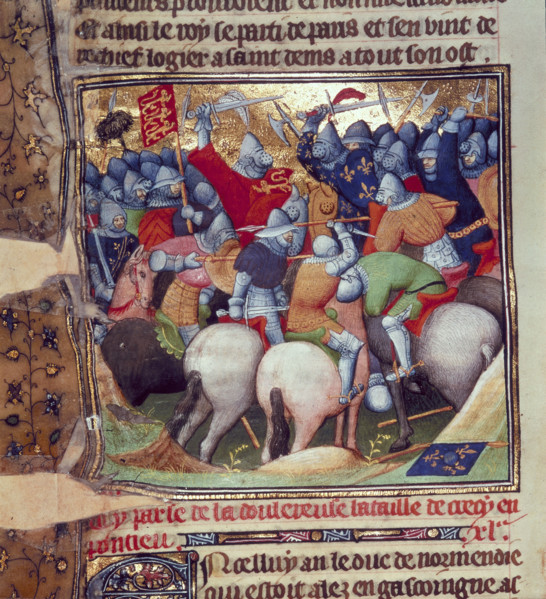 Et ainsi le roy se parti de paris et sen vint de
rechief logier a saint denis a tout son ost.
Cy parle de la douleureuse bataille de crecy en
pontieu.
N celluy an le duc de normendie
qui estoit alez en gascoingne